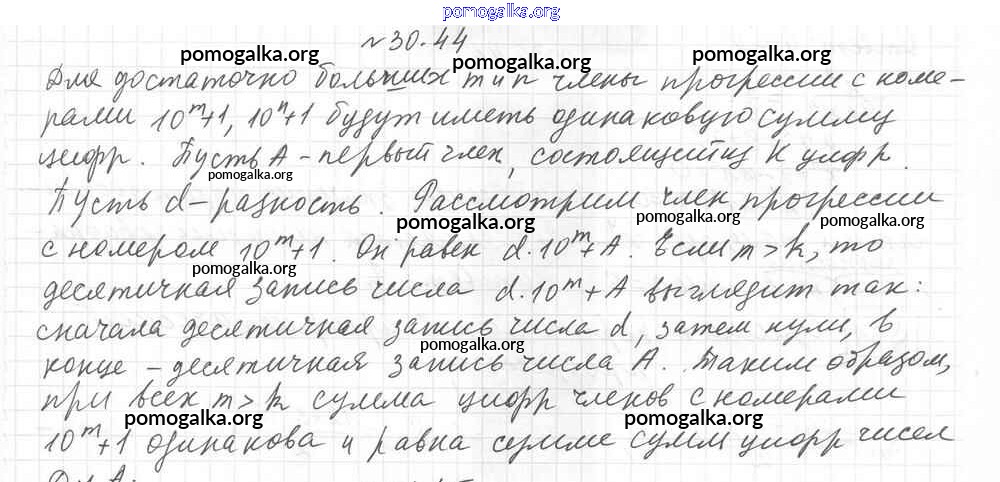 pomogalka.org
№30.44
pomogalka.org pomogalka.org pomogalka.org
Для достаточно больших m и n члены прогрессии с номе-
рами 10^m+1, 10^n+1 будут иметь одинаковую сумму
цифр. Пусть A - первый член, состоящий из K цифр.
pomogalka.org
Пусть d - разность. Рассмотрим член прогрессии
pomogalka.org pomogalka.org
с номером 10^m+1. Он равен d·10^m+A. Если m>k, то
pomogalka.org
десятичная запись числа d·10^m+A выглядит так:
сначала десятичная запись числа d, затем нули, в
pomogalka.org pomogalka.org
конце - десятичная запись числа A. Таким образом,
при всех m>k сумма цифр членов с номерами
pomogalka.org pomogalka.org pomogalka.org
10^m+1 одинакова и равна сумме сумм цифр чисел